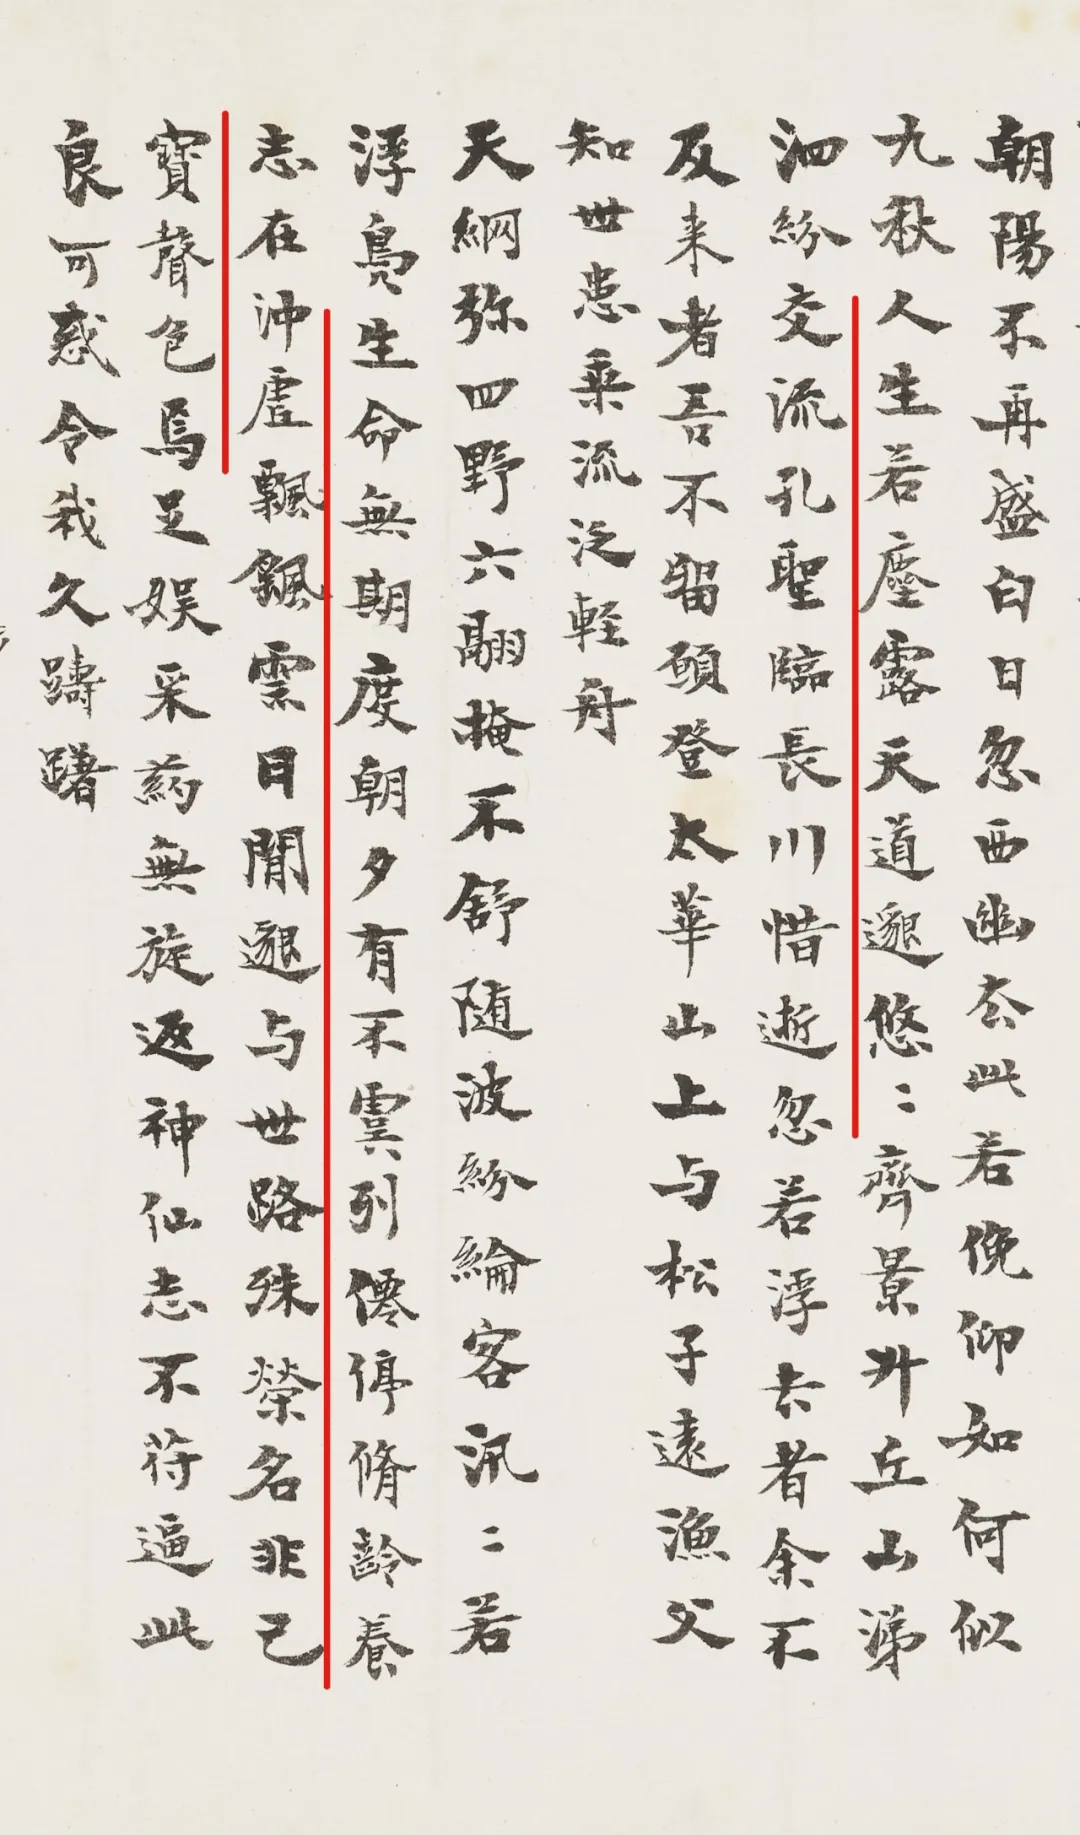 朝陽不再盛白日忽西幽去此若俛仰如何似
九秋人生若塵露天道邈悠〻齊景升丘山涕
泗紛交流孔聖臨長川惜逝忽若浮去者余不
及来者吾不留願登太華山上与松子遠漁父
知世患乗流泛軽舟
天網弥四野六翮掩不舒随波紛綸客汎〻若
浮鳧生命無期度朝夕有不虞列僊停脩齡養
志在沖虛飄颻雲日閒邈与世路殊榮名非己
寶聲色焉足娱采药無旋返神仙志不符逼此
良可惑令我久躊躇